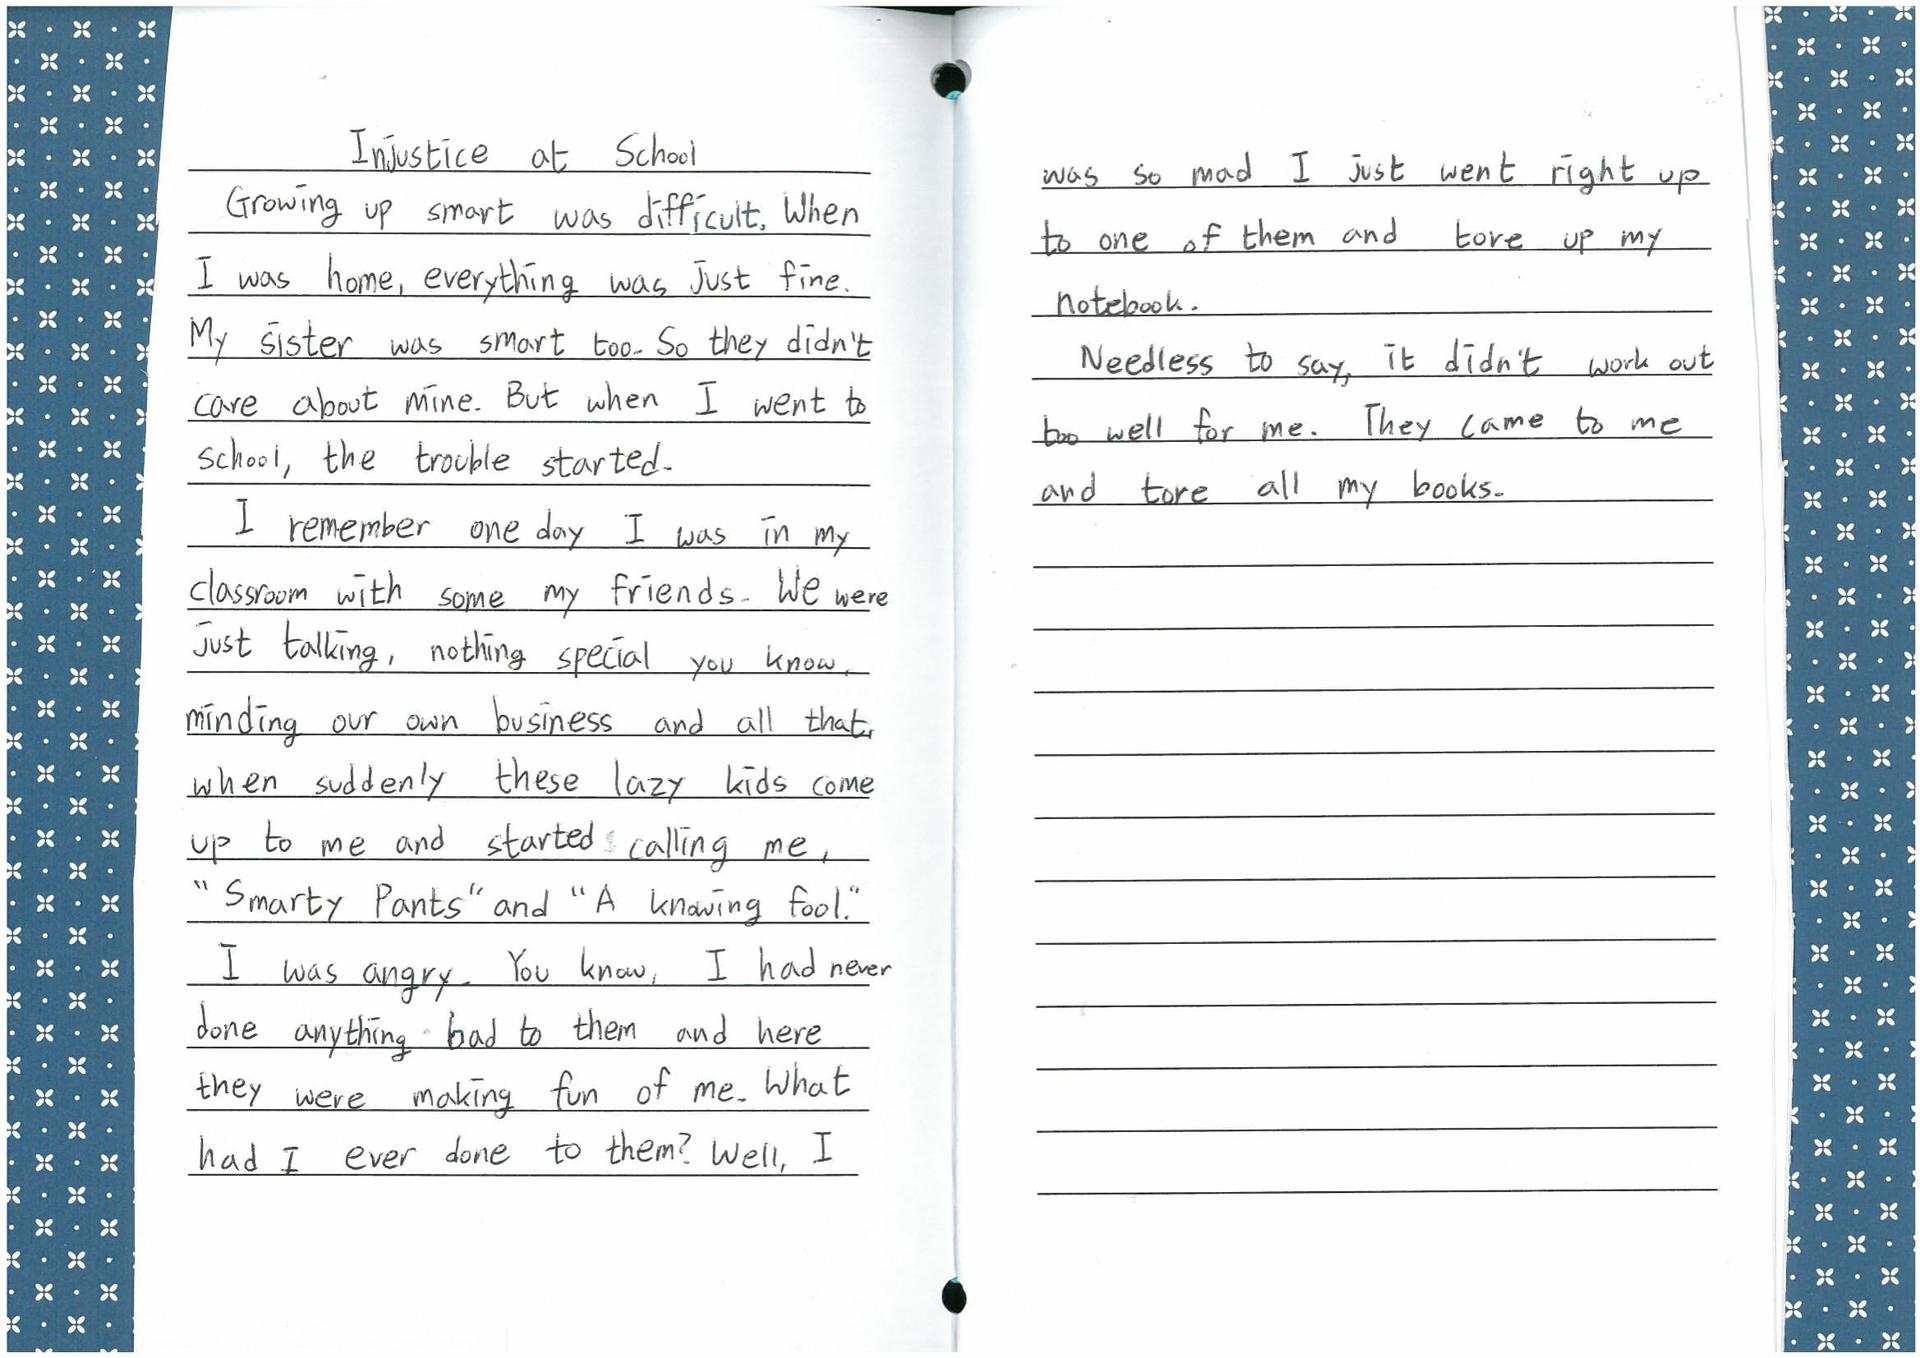 Injustice at School
Growing up smart was difficult. When
I was home, everything was just fine.
My sister was smart too. So they didn't
care about mine. But when I went to
school, the trouble started.
I remember one day I was in my
classroom with some my friends. We were
just talking, nothing special you know,
minding our own business and all that,
when suddenly these lazy kids come
up to me and started calling me,
"Smarty Pants" and "A knowing fool."
I was angry. You know, I had never
done anything bad to them and here
they were making fun of me. What
had I ever done to them? Well, I
was so mad I just went right up
to one of them and tore up my
notebook.
Needless to say, it didn't work out
too well for me. They came to me
and tore all my books.